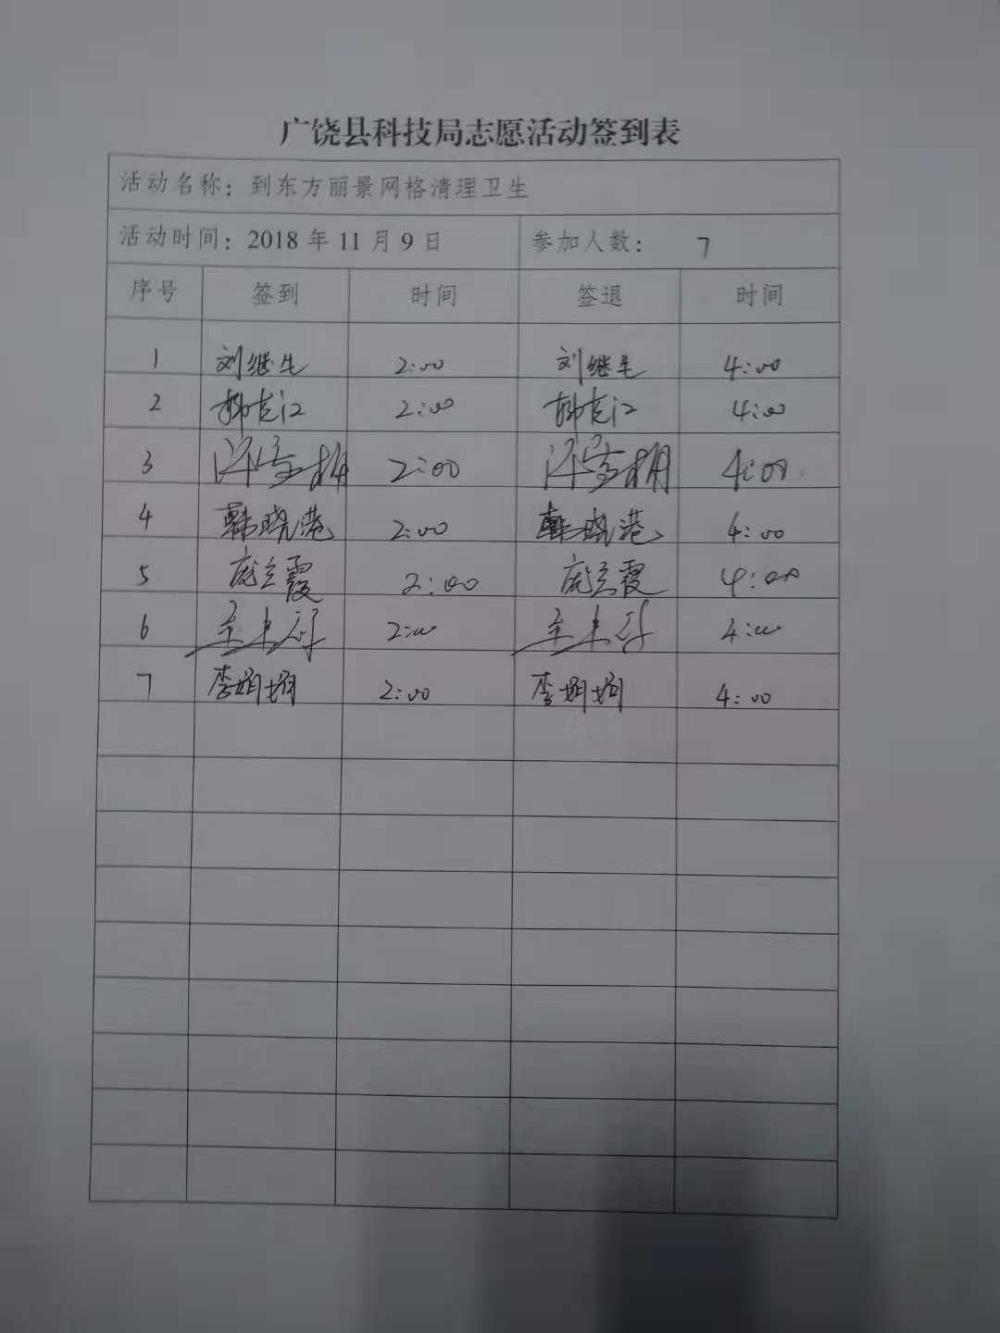 广饶县科技局志愿活动签到表
活动名称：到东方丽景网格清理卫生
活动时间：2018 年 11 月 9 日 参加人数： 7
序号 签到 时间 签退 时间
1 刘继生 2:00 刘继生 4:00
2 2:00 4:00
3 2:00 4:00
4 韩晓港 2:00 韩晓港 4:00
5 庞立霞 2:00 庞立霞 4:00
6 2:00 4:00
7 李娟娟 2:00 李娟娟 4:00